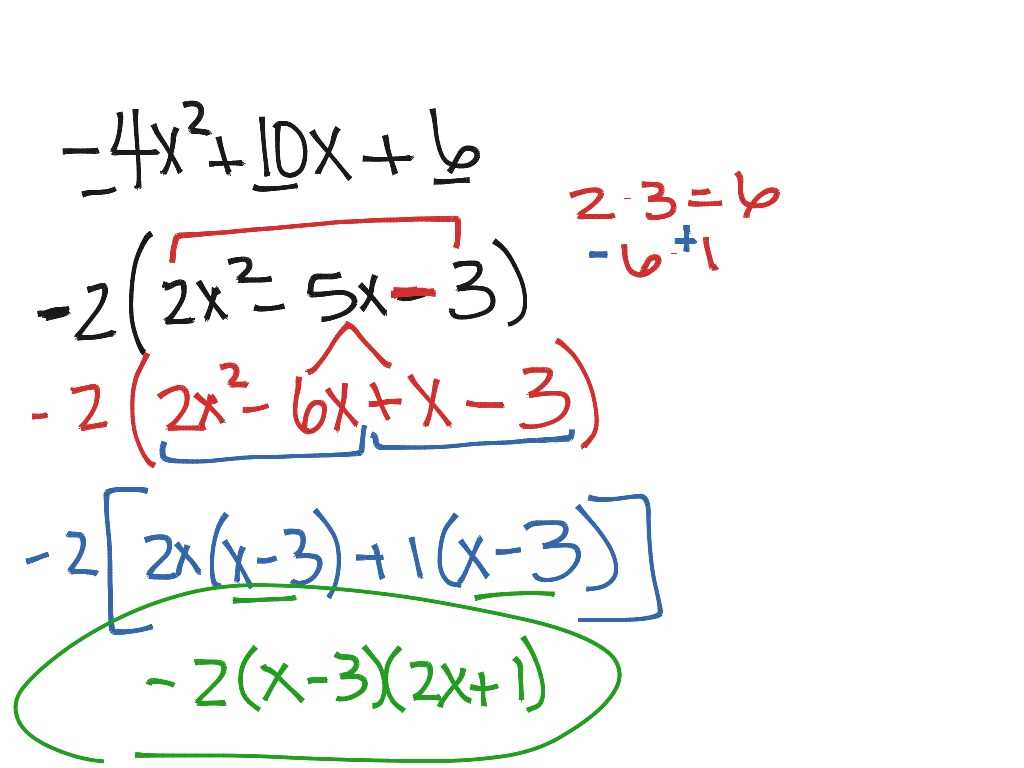 -4x² + 10x + 6
2 · 3 = 6
-6 · +1
-2(2x² - 5x - 3)
-2(2x² - 6x + x - 3)
-2[2x(x-3) + 1(x-3)]
-2(x-3)(2x+1)